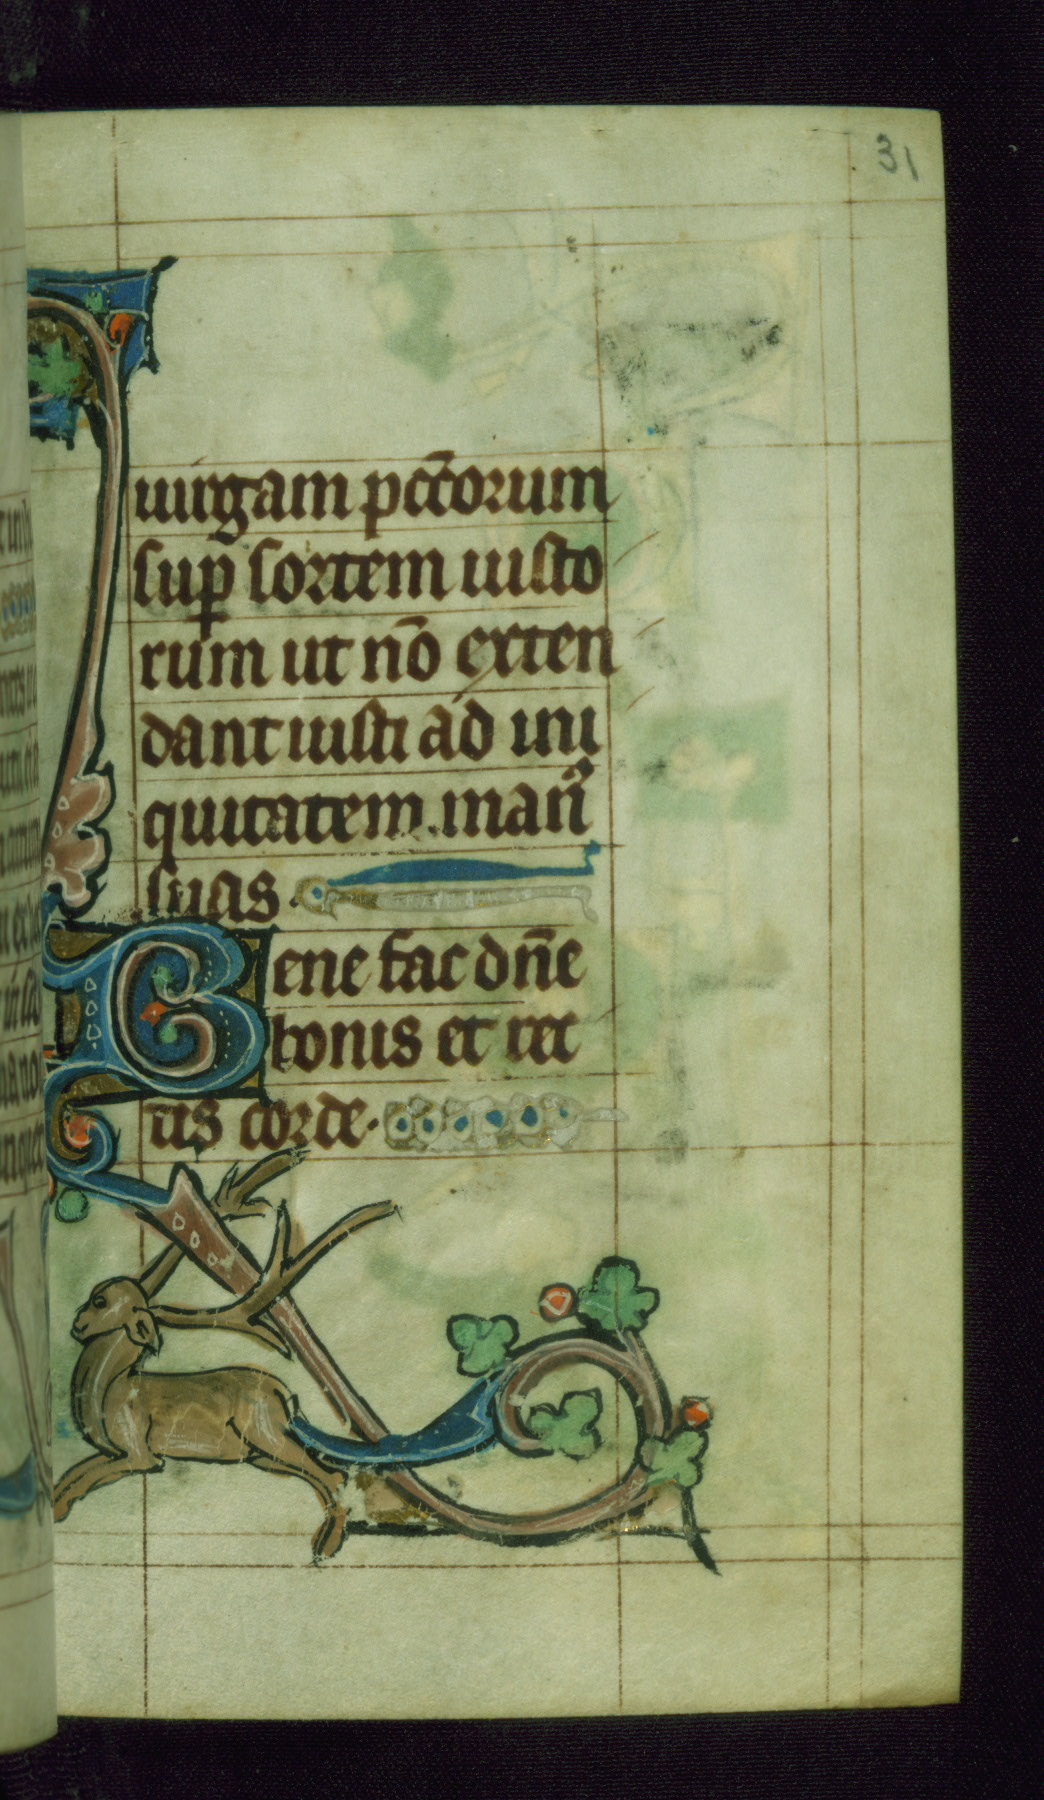 31
uirgam pc̄corum
sup̄ sortem iusto
rum ut nō exten
dant iusti ad ini
quitatem man᷒
suas.
Bene fac dn̄e
bonis et rec
tis corde.